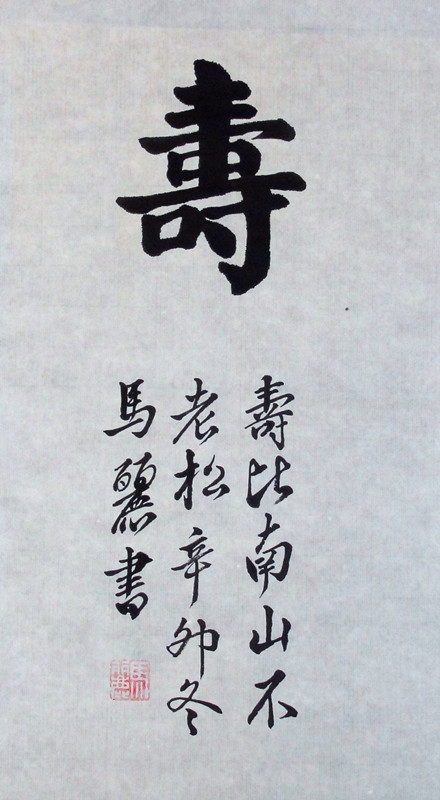 壽
壽比南山不
老松辛卯冬
馬麗書
馬麗